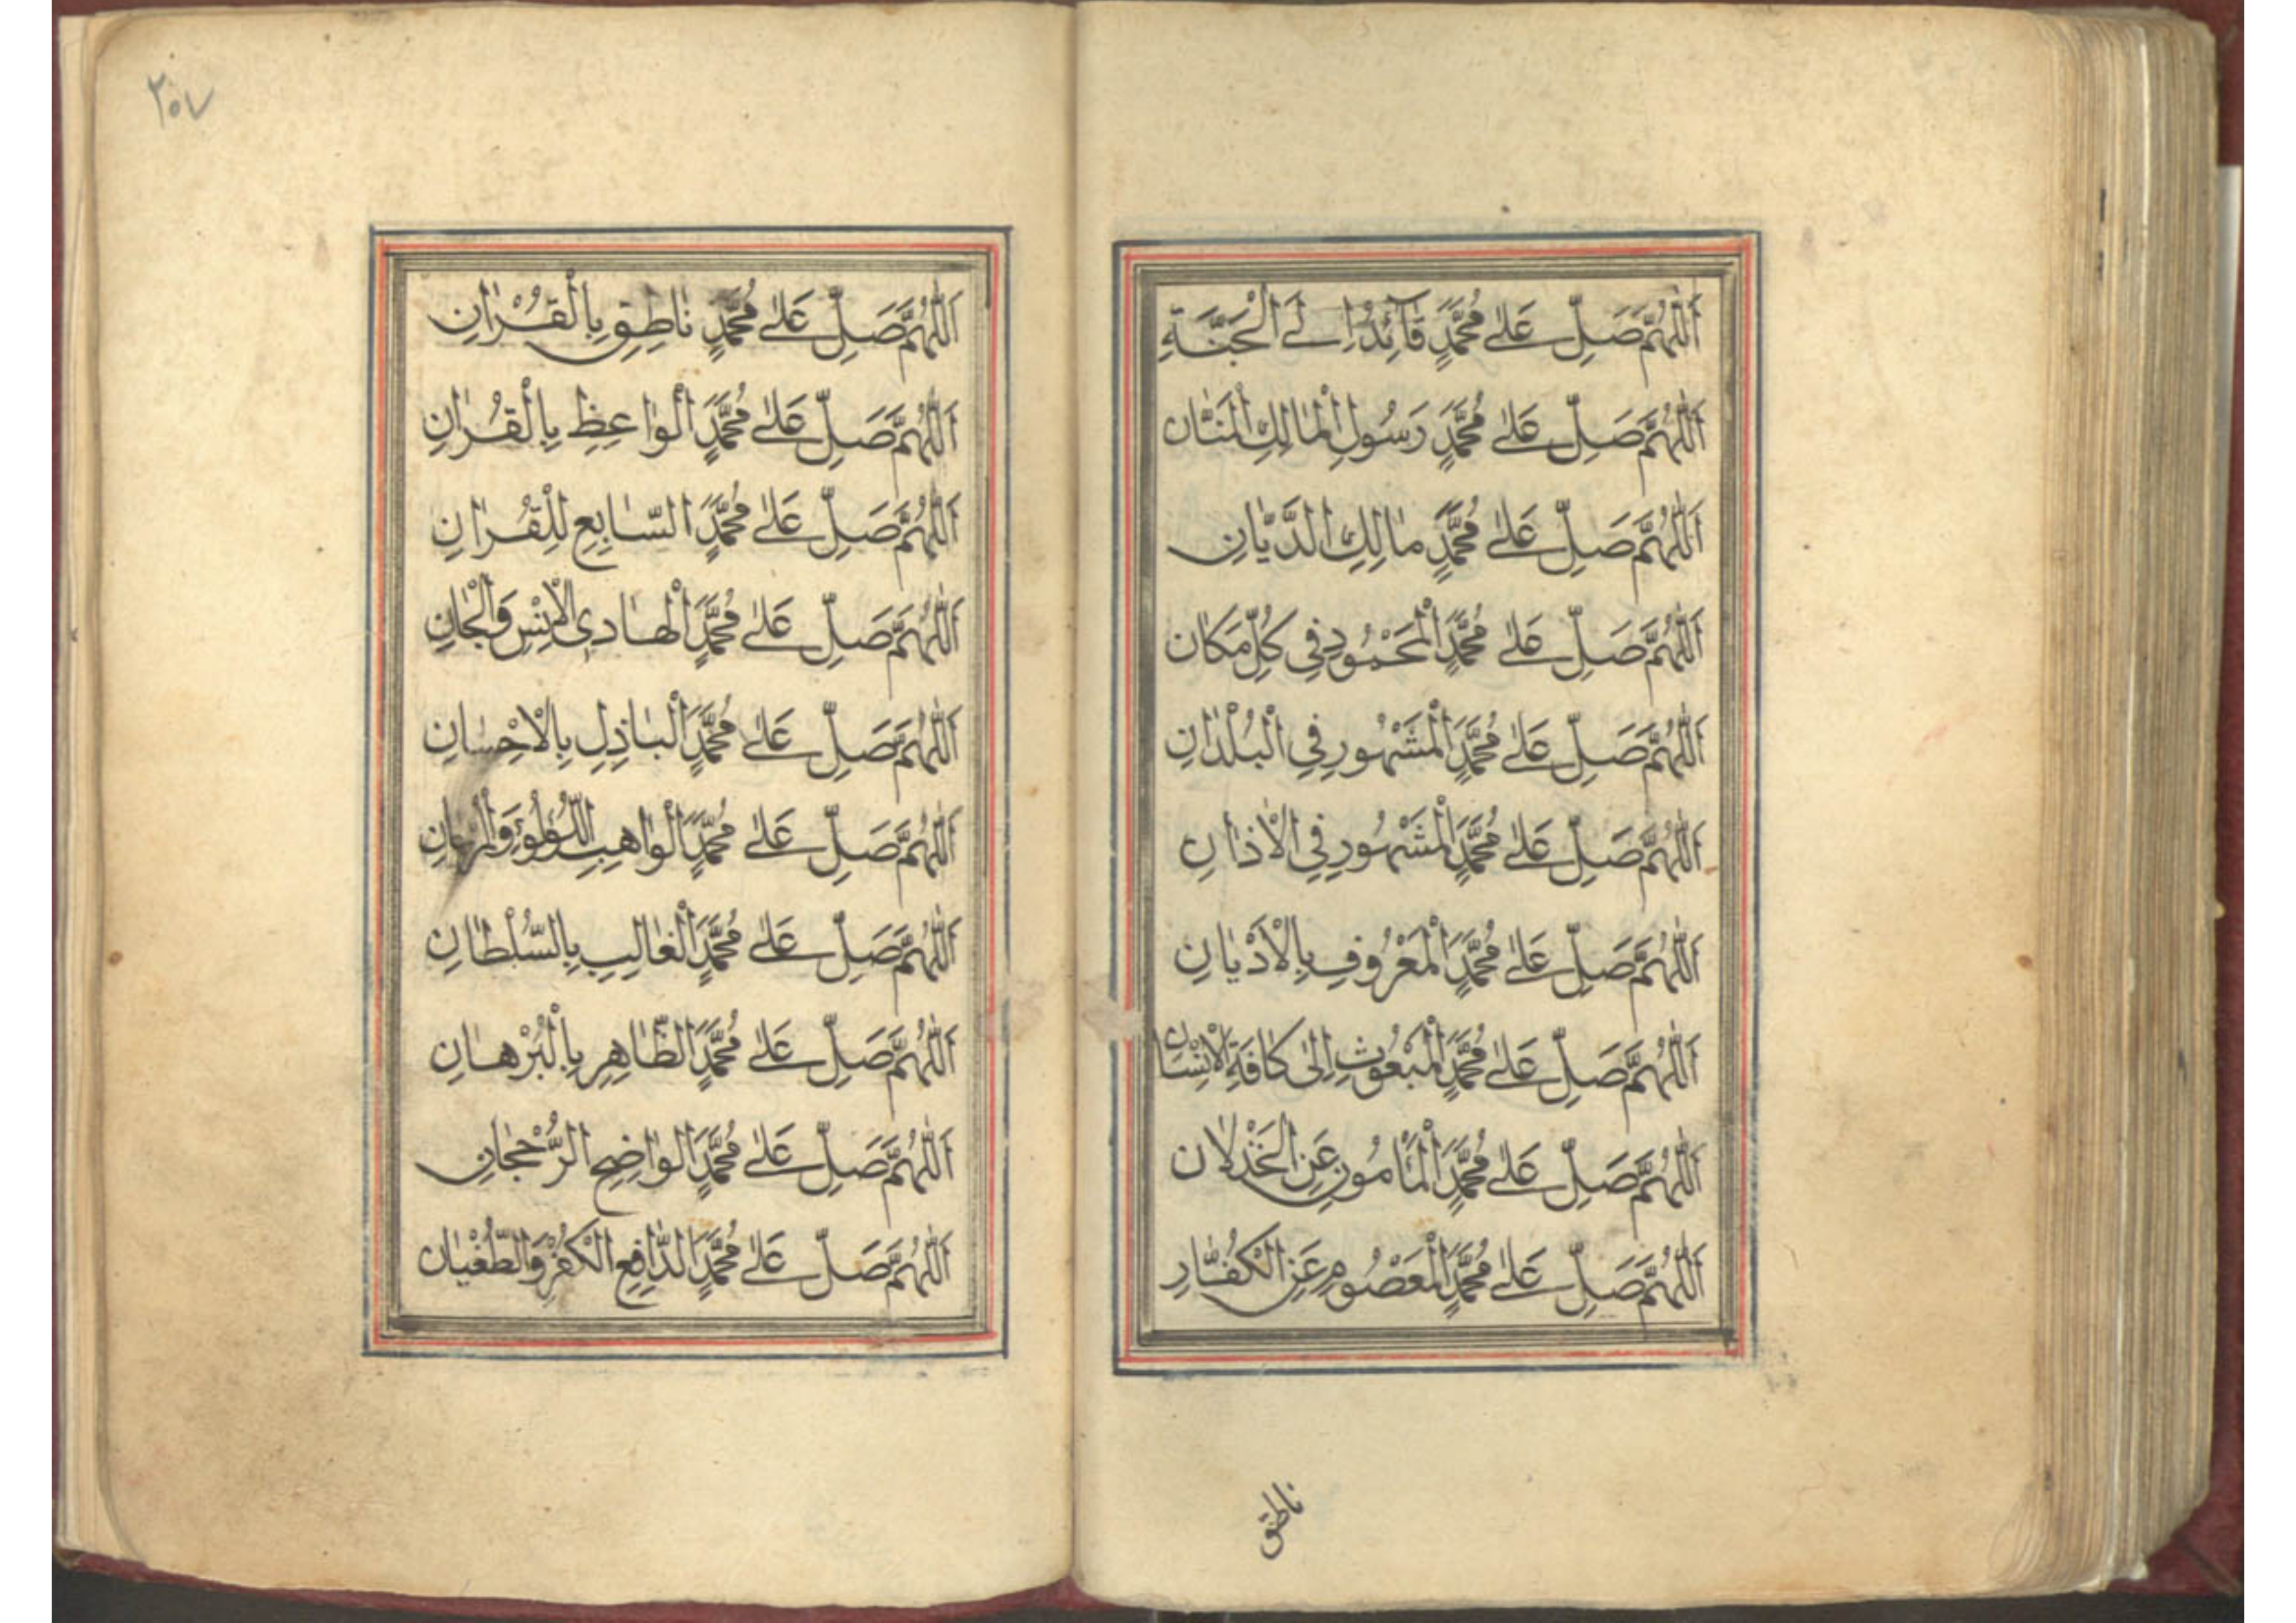 اَللّٰهُمَّ صَلِّ عَلٰى مُحَمَّدٍ قَآئِدًا اِلَى الْجَنَّةِ
اَللّٰهُمَّ صَلِّ عَلٰى مُحَمَّدٍ رَسُولِ الْمَالِكِ الْمَنَّان
اَللّٰهُمَّ صَلِّ عَلٰى مُحَمَّدٍ مٰالِكِ الدَّيَّانِ
اَللّٰهُمَّ صَلِّ عَلٰى مُحَمَّدٍ الْمَحْمُودِ فِى كُلِّ مَكَان
اَللّٰهُمَّ صَلِّ عَلٰى مُحَمَّدٍ الْمَشْهُورِ فِي الْبُلْدَانِ
اَللّٰهُمَّ صَلِّ عَلٰى مُحَمَّدٍ الْمَشْهُورِ فِي الْاَذَانِ
اَللّٰهُمَّ صَلِّ عَلٰى مُحَمَّدٍ الْمَعْرُوفِ بِالْاَدْيَانِ
اَللّٰهُمَّ صَلِّ عَلٰى مُحَمَّدٍ الْمَبْعُوثِ اِلٰى كَافَةِ الْاِنْسَانِ
اَللّٰهُمَّ صَلِّ عَلٰى مُحَمَّدٍ الْمَأْمُونِ عَنِ الْخَذْلَان
اَللّٰهُمَّ صَلِّ عَلٰى مُحَمَّدٍ الْمَعْصُومِ عَنِ الْكُفَّارِ
ناطق
٢٠٧
اَللّٰهُمَّ صَلِّ عَلٰى مُحَمَّدٍ نٰاطِقِ بِالْقُرْاٰنِ
اَللّٰهُمَّ صَلِّ عَلٰى مُحَمَّدٍ الْوٰاعِظِ بِالْقُرْاٰنِ
اَللّٰهُمَّ صَلِّ عَلٰى مُحَمَّدٍ السّٰابِعِ لِلْقُرْاٰنِ
اَللّٰهُمَّ صَلِّ عَلٰى مُحَمَّدٍ الْهٰادِى الْاِنْسِ وَالْجَانِ
اَللّٰهُمَّ صَلِّ عَلٰى مُحَمَّدٍ الْبٰاذِلِ بِالْاِحْسٰانِ
اَللّٰهُمَّ صَلِّ عَلٰى مُحَمَّدٍ الْوٰاهِبِ اللُّؤْلُؤِ وَالْمَرْجَانِ
اَللّٰهُمَّ صَلِّ عَلٰى مُحَمَّدٍ الْغٰالِبِ بِالسُّلْطٰانِ
اَللّٰهُمَّ صَلِّ عَلٰى مُحَمَّدٍ الظّٰاهِرِ بِالْبُرْهٰانِ
اَللّٰهُمَّ صَلِّ عَلٰى مُحَمَّدٍ الْوٰاضِحِ الرُّحْجٰانِ
اَللّٰهُمَّ صَلِّ عَلٰى مُحَمَّدٍ الدّٰافِعِ الْكُفْرِ وَالطُّغْيٰان